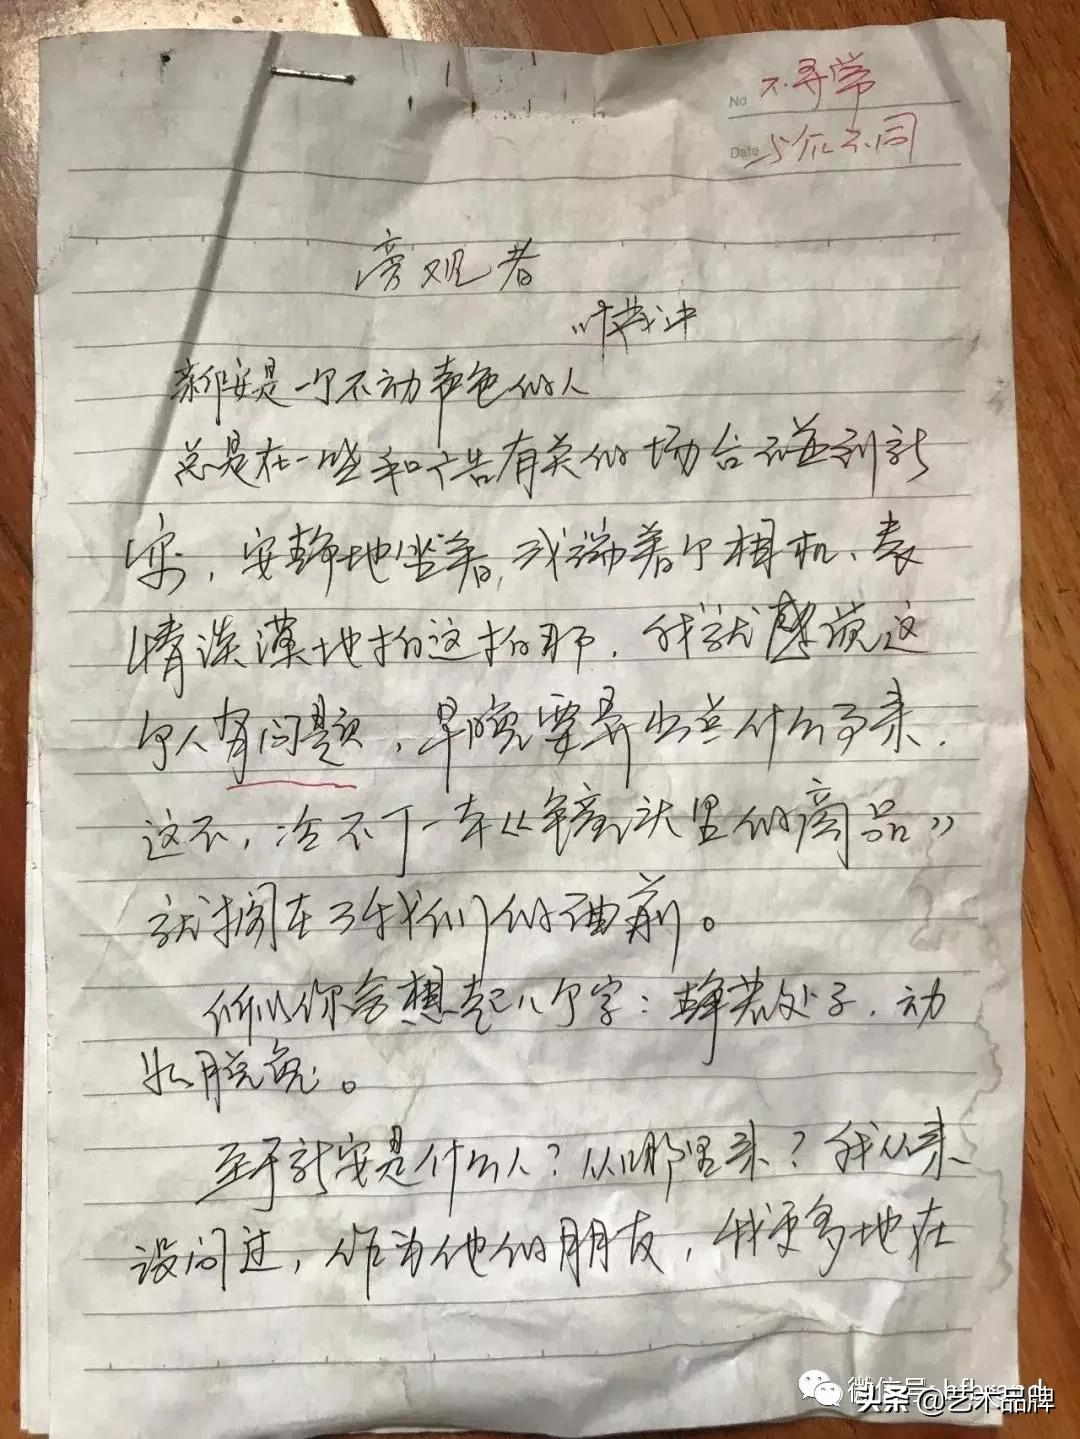 No 不寻常
Date 与众不同
旁观者
叶茂中
新安是一个不动声色的人
总是在一些和广告有关的场合碰到新
安，安静地坐着，或端着个相机、表
情淡漠地拍这拍那．我就感觉这
个人有问题，早晚要弄出点什么事来．
这不，冷不丁一本《镜头里的商品》
就搁在了我们的面前。
所以你会想起几个字：静若处子．动
如脱兔。
至于新安是什么人？从哪里来？我从来
没问过，作为他的朋友，我更多地在
微信号: hfbrand
头条 @艺术品牌